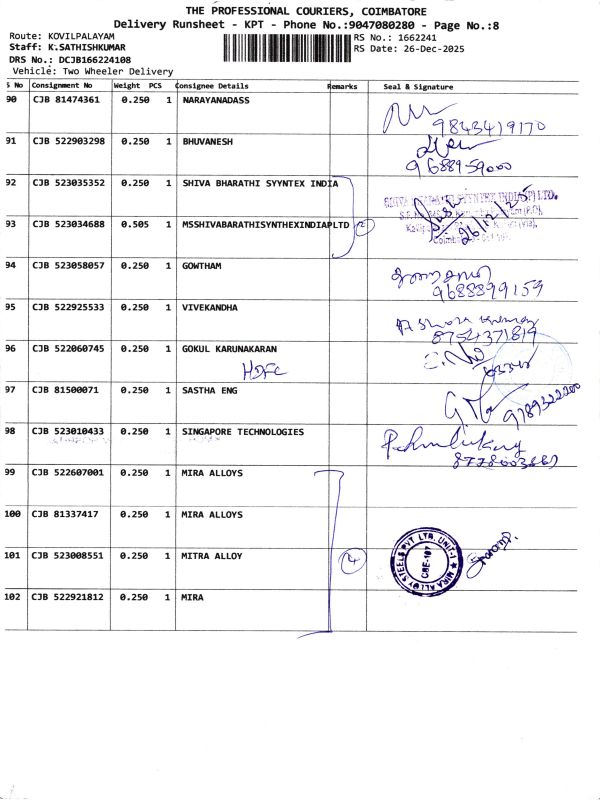 THE PROFESSIONAL COURIERS, COIMBATORE
Delivery Runsheet - KPT - Phone No.:9047080280 - Page No.:8
Route: KOVILPALAYAM
Staff: K.SATHISHKUMAR
DRS No.: DCJB166224108
Vehicle: Two Wheeler Delivery
RS No.: 1662241
RS Date: 26-Dec-2025
S No Consignment No Weight PCS Consignee Details Remarks Seal & Signature
90 CJB 81474361 0.250 1 NARAYANADASS
9843419170
91 CJB 522903298 0.250 1 BHUVANESH
9688959000
92 CJB 523035352 0.250 1 SHIVA BHARATHI SYYNTEX INDIA
93 CJB 523034688 0.505 1 MSSHIVABARATHISYNTHEXINDIAPLTD 2
26/12/25
94 CJB 523058057 0.250 1 GOWTHAM
9688899159
95 CJB 522925533 0.250 1 VIVEKANDHA
8754371819
96 CJB 522060745 0.250 1 GOKUL KARUNAKARAN
HDFC
97 CJB 81500071 0.250 1 SASTHA ENG
9789322200
98 CJB 523010433 0.250 1 SINGAPORE TECHNOLOGIES
99 CJB 522607001 0.250 1 MIRA ALLOYS
100 CJB 81337417 0.250 1 MIRA ALLOYS
101 CJB 523008551 0.250 1 MITRA ALLOY 4
MIRA ALLOY STEELS PVT LTD. UNIT-1
CBE-107
102 CJB 522921812 0.250 1 MIRA